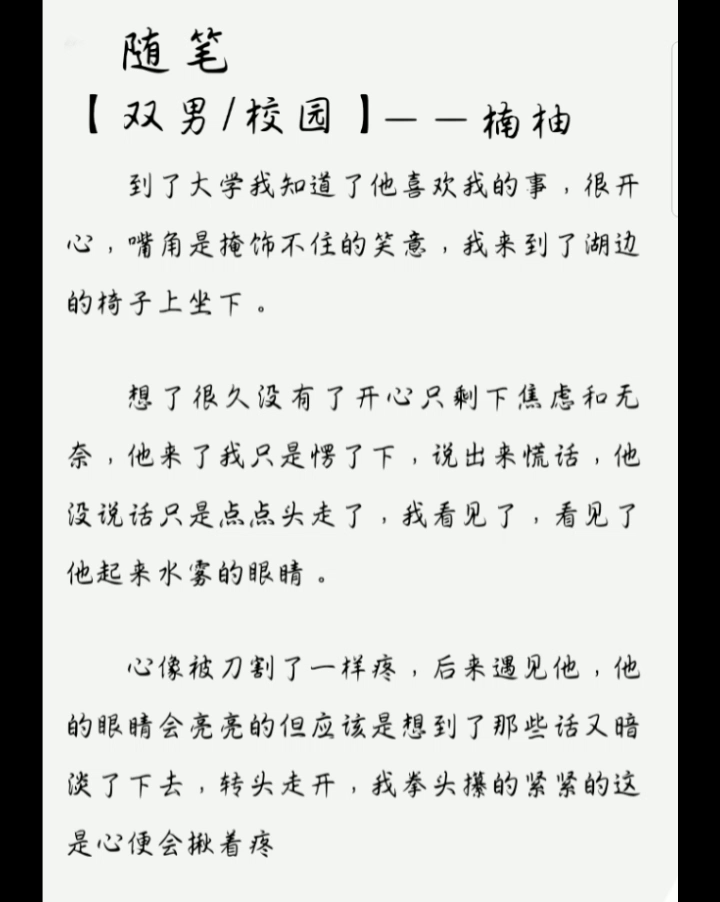 随笔
【双男/校园】——楠柚
到了大学我知道了他喜欢我的事，很开
心，嘴角是掩饰不住的笑意，我来到了湖边
的椅子上坐下。
想了很久没有了开心只剩下焦虑和无
奈，他来了我只是愣了下，说出来慌话，他
没说话只是点点头走了，我看见了，看见了
他起来水雾的眼睛。
心像被刀割了一样疼，后来遇见他，他
的眼睛会亮亮的但应该是想到了那些话又暗
淡了下去，转头走开，我拳头攥的紧紧的这
是心便会揪着疼